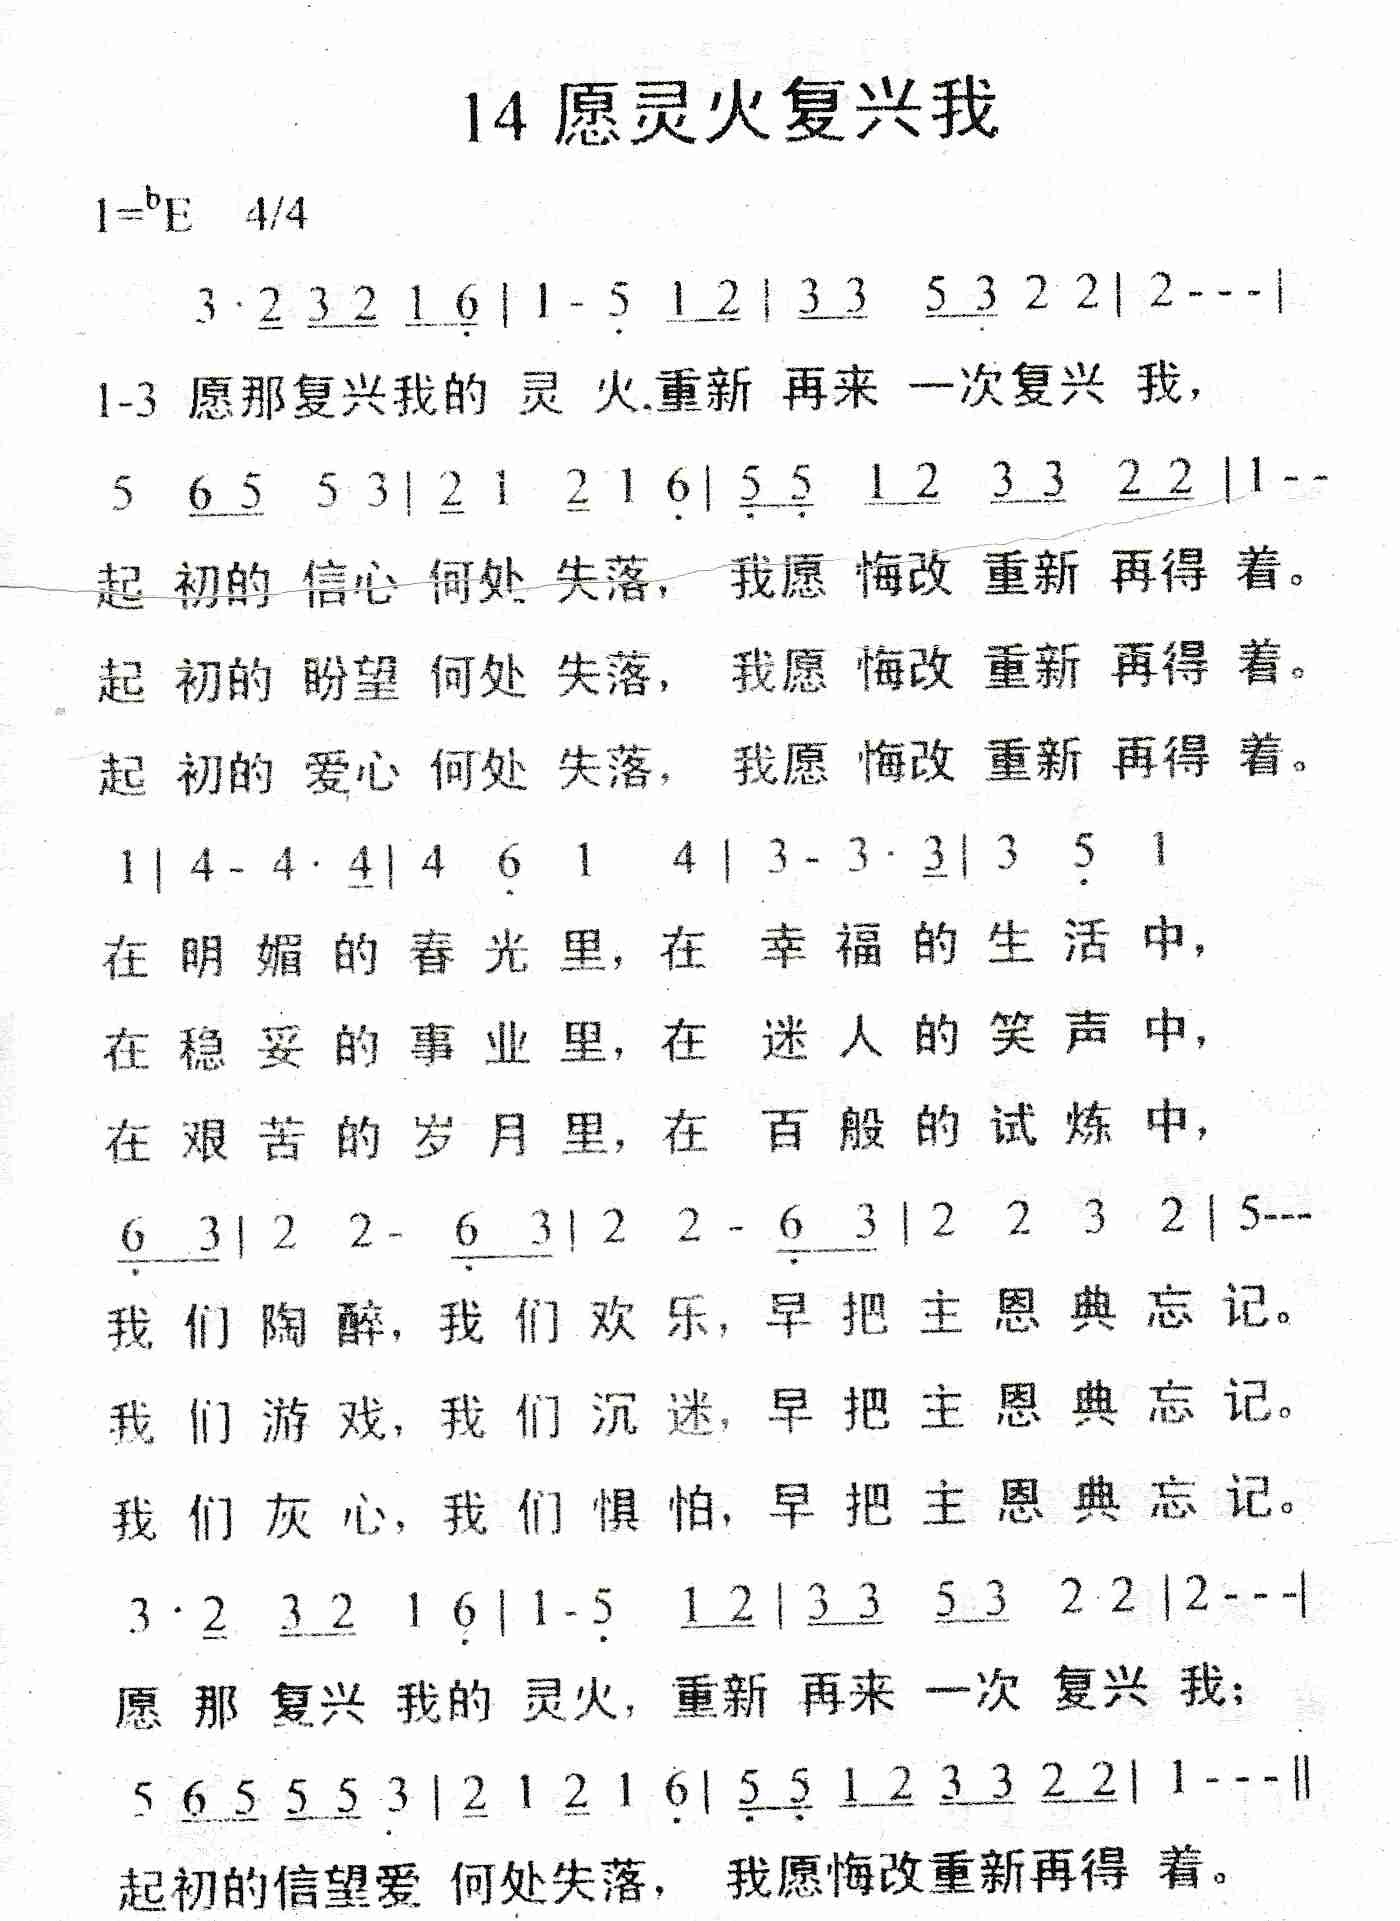 14 愿灵火复兴我
1=ᵇE 4/4
3·2 3 2 1 6 | 1 - 5 1 2 | 3 3 5 3 2 2 | 2 - - - |
1-3 愿那复兴我的 灵 火.重新 再来 一次复兴 我，
5 6 5 5 3 | 2 1 2 1 6 | 5 5 1 2 3 3 2 2 | 1 - -
起 初的 信心 何处 失落， 我愿 悔改 重新 再得 着。
起 初的 盼望 何处 失落， 我愿 悔改 重新 再得 着。
起 初的 爱心 何处 失落， 我愿 悔改 重新 再得 着。
1 | 4 - 4· 4 | 4 6 1 4 | 3 - 3· 3 | 3 5 1
在 明 媚 的 春 光 里，在 幸 福 的 生 活 中，
在 稳 妥 的 事 业 里，在 迷 人 的 笑 声 中，
在 艰 苦 的 岁 月 里，在 百 般 的 试 炼 中，
6 3 | 2 2 - 6 3 | 2 2 - 6 3 | 2 2 3 2 | 5---
我 们 陶 醉，我 们 欢 乐，早 把 主 恩 典 忘 记。
我 们 游 戏，我 们 沉 迷，早 把 主 恩 典 忘 记。
我 们 灰 心，我 们 惧 怕，早 把 主 恩 典 忘 记。
3·2 3 2 1 6 | 1 - 5 1 2 | 3 3 5 3 2 2 | 2 - - - |
愿 那 复兴 我的 灵火，重新 再来 一次 复兴 我；
5 6 5 5 5 3 | 2 1 2 1 6 | 5 5 1 2 3 3 2 2 | 1 - - - ‖
起初的信望爱 何处失落， 我愿悔改重新再得 着。